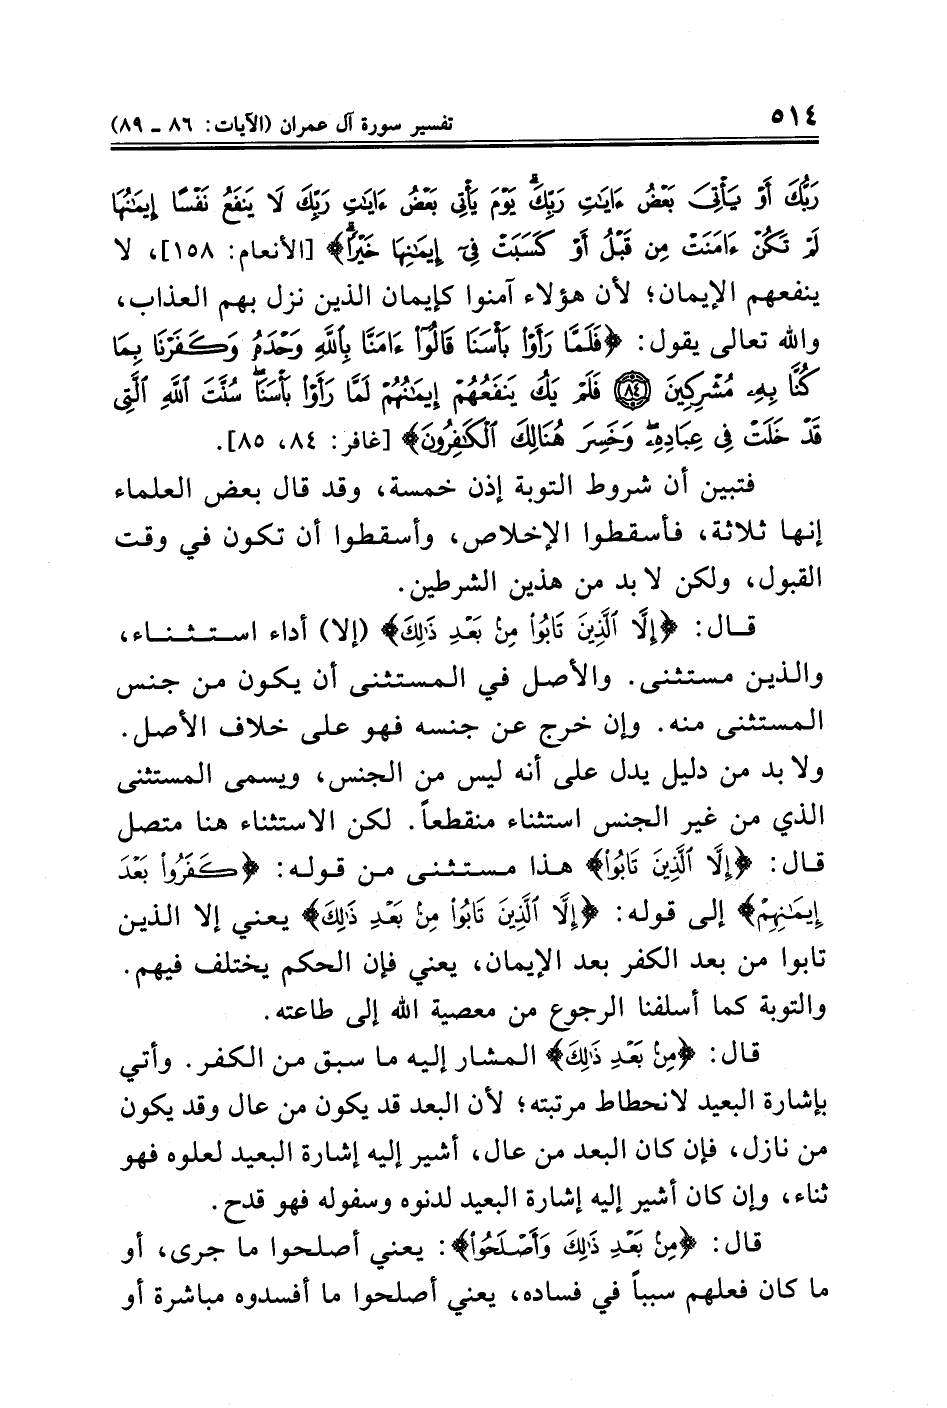 ٥١٤
تفسير سورة آل عمران (الآيات: ٨٦ ـ ٨٩)
رَبُّكَ أَوْ يَأْتِيَ بَعْضُ ءَايَٰتِ رَبِّكَ يَوْمَ يَأْتِي بَعْضُ ءَايَٰتِ رَبِّكَ لَا يَنفَعُ نَفْسًا إِيمَٰنُهَا
لَمْ تَكُنْ ءَامَنَتْ مِن قَبْلُ أَوْ كَسَبَتْ فِىٓ إِيمَٰنِهَا خَيْرًا﴾ [الأنعام: ١٥٨]، لا
ينفعهم الإيمان؛ لأن هؤلاء آمنوا كإيمان الذين نزل بهم العذاب،
والله تعالى يقول: ﴿فَلَمَّا رَأَوْا۟ بَأْسَنَا قَالُوٓا۟ ءَامَنَّا بِٱللَّهِ وَحْدَهُۥ وَكَفَرْنَا بِمَا
كُنَّا بِهِۦ مُشْرِكِينَ ٨٤ فَلَمْ يَكُ يَنفَعُهُمْ إِيمَٰنُهُمْ لَمَّا رَأَوْا۟ بَأْسَنَا سُنَّتَ ٱللَّهِ ٱلَّتِى
قَدْ خَلَتْ فِى عِبَادِهِۦ وَخَسِرَ هُنَالِكَ ٱلْكَٰفِرُونَ﴾ [غافر: ٨٤، ٨٥].
فتبين أن شروط التوبة إذن خمسة، وقد قال بعض العلماء
إنها ثلاثة، فأسقطوا الإخلاص، وأسقطوا أن تكون في وقت
القبول، ولكن لا بد من هذين الشرطين.
قال: ﴿إِلَّا ٱلَّذِينَ تَابُوا۟ مِنۢ بَعْدِ ذَٰلِكَ﴾ (إلا) أداء استثناء،
والذين مستثنى. والأصل في المستثنى أن يكون من جنس
المستثنى منه. وإن خرج عن جنسه فهو على خلاف الأصل.
ولا بد من دليل يدل على أنه ليس من الجنس، ويسمى المستثنى
الذي من غير الجنس استثناء منقطعاً. لكن الاستثناء هنا متصل
قال: ﴿إِلَّا ٱلَّذِينَ تَابُوا۟﴾ هذا مستثنى من قوله: ﴿كَفَرُوا۟ بَعْدَ
إِيمَٰنِهِمْ﴾ إلى قوله: ﴿إِلَّا ٱلَّذِينَ تَابُوا۟ مِنۢ بَعْدِ ذَٰلِكَ﴾ يعني إلا الذين
تابوا من بعد الكفر بعد الإيمان، يعني فإن الحكم يختلف فيهم.
والتوبة كما أسلفنا الرجوع من معصية الله إلى طاعته.
قال: ﴿مِنۢ بَعْدِ ذَٰلِكَ﴾ المشار إليه ما سبق من الكفر. وأتي
بإشارة البعيد لانحطاط مرتبته؛ لأن البعد قد يكون من عال وقد يكون
من نازل، فإن كان البعد من عال، أشير إليه إشارة البعيد لعلوه فهو
ثناء، وإن كان أشير إليه إشارة البعيد لدنوه وسفوله فهو قدح.
قال: ﴿مِنۢ بَعْدِ ذَٰلِكَ وَأَصْلَحُوا۟﴾: يعني أصلحوا ما جرى، أو
ما كان فعلهم سبباً في فساده، يعني أصلحوا ما أفسدوه مباشرة أو